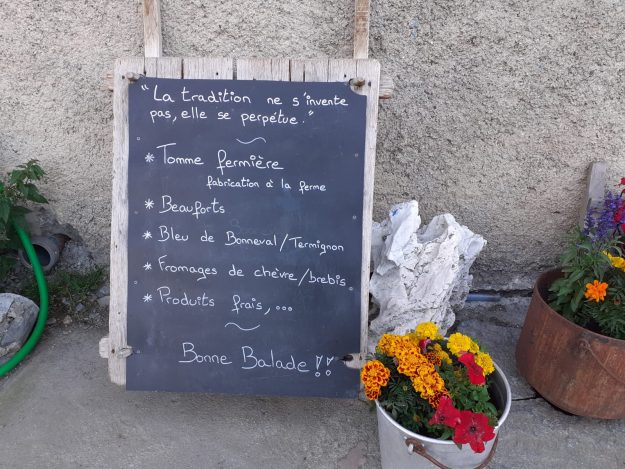 "La tradition ne s'invente
pas, elle se perpétue."
* Tomme fermière
fabrication à la ferme
* Beauforts
* Bleu de Bonneval/Termignon
* Fromages de chèvre/brebis
* Produits frais,...
Bonne Balade!!